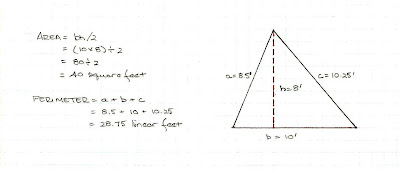 AREA = bh/2
= (10x8) ÷ 2
= 80 ÷ 2
= 40 square feet
PERIMETER = a + b + c
= 8.5 + 10 + 10.25
= 28.75 linear feet
a = 8.5'
h = 8'
c = 10.25'
b = 10'